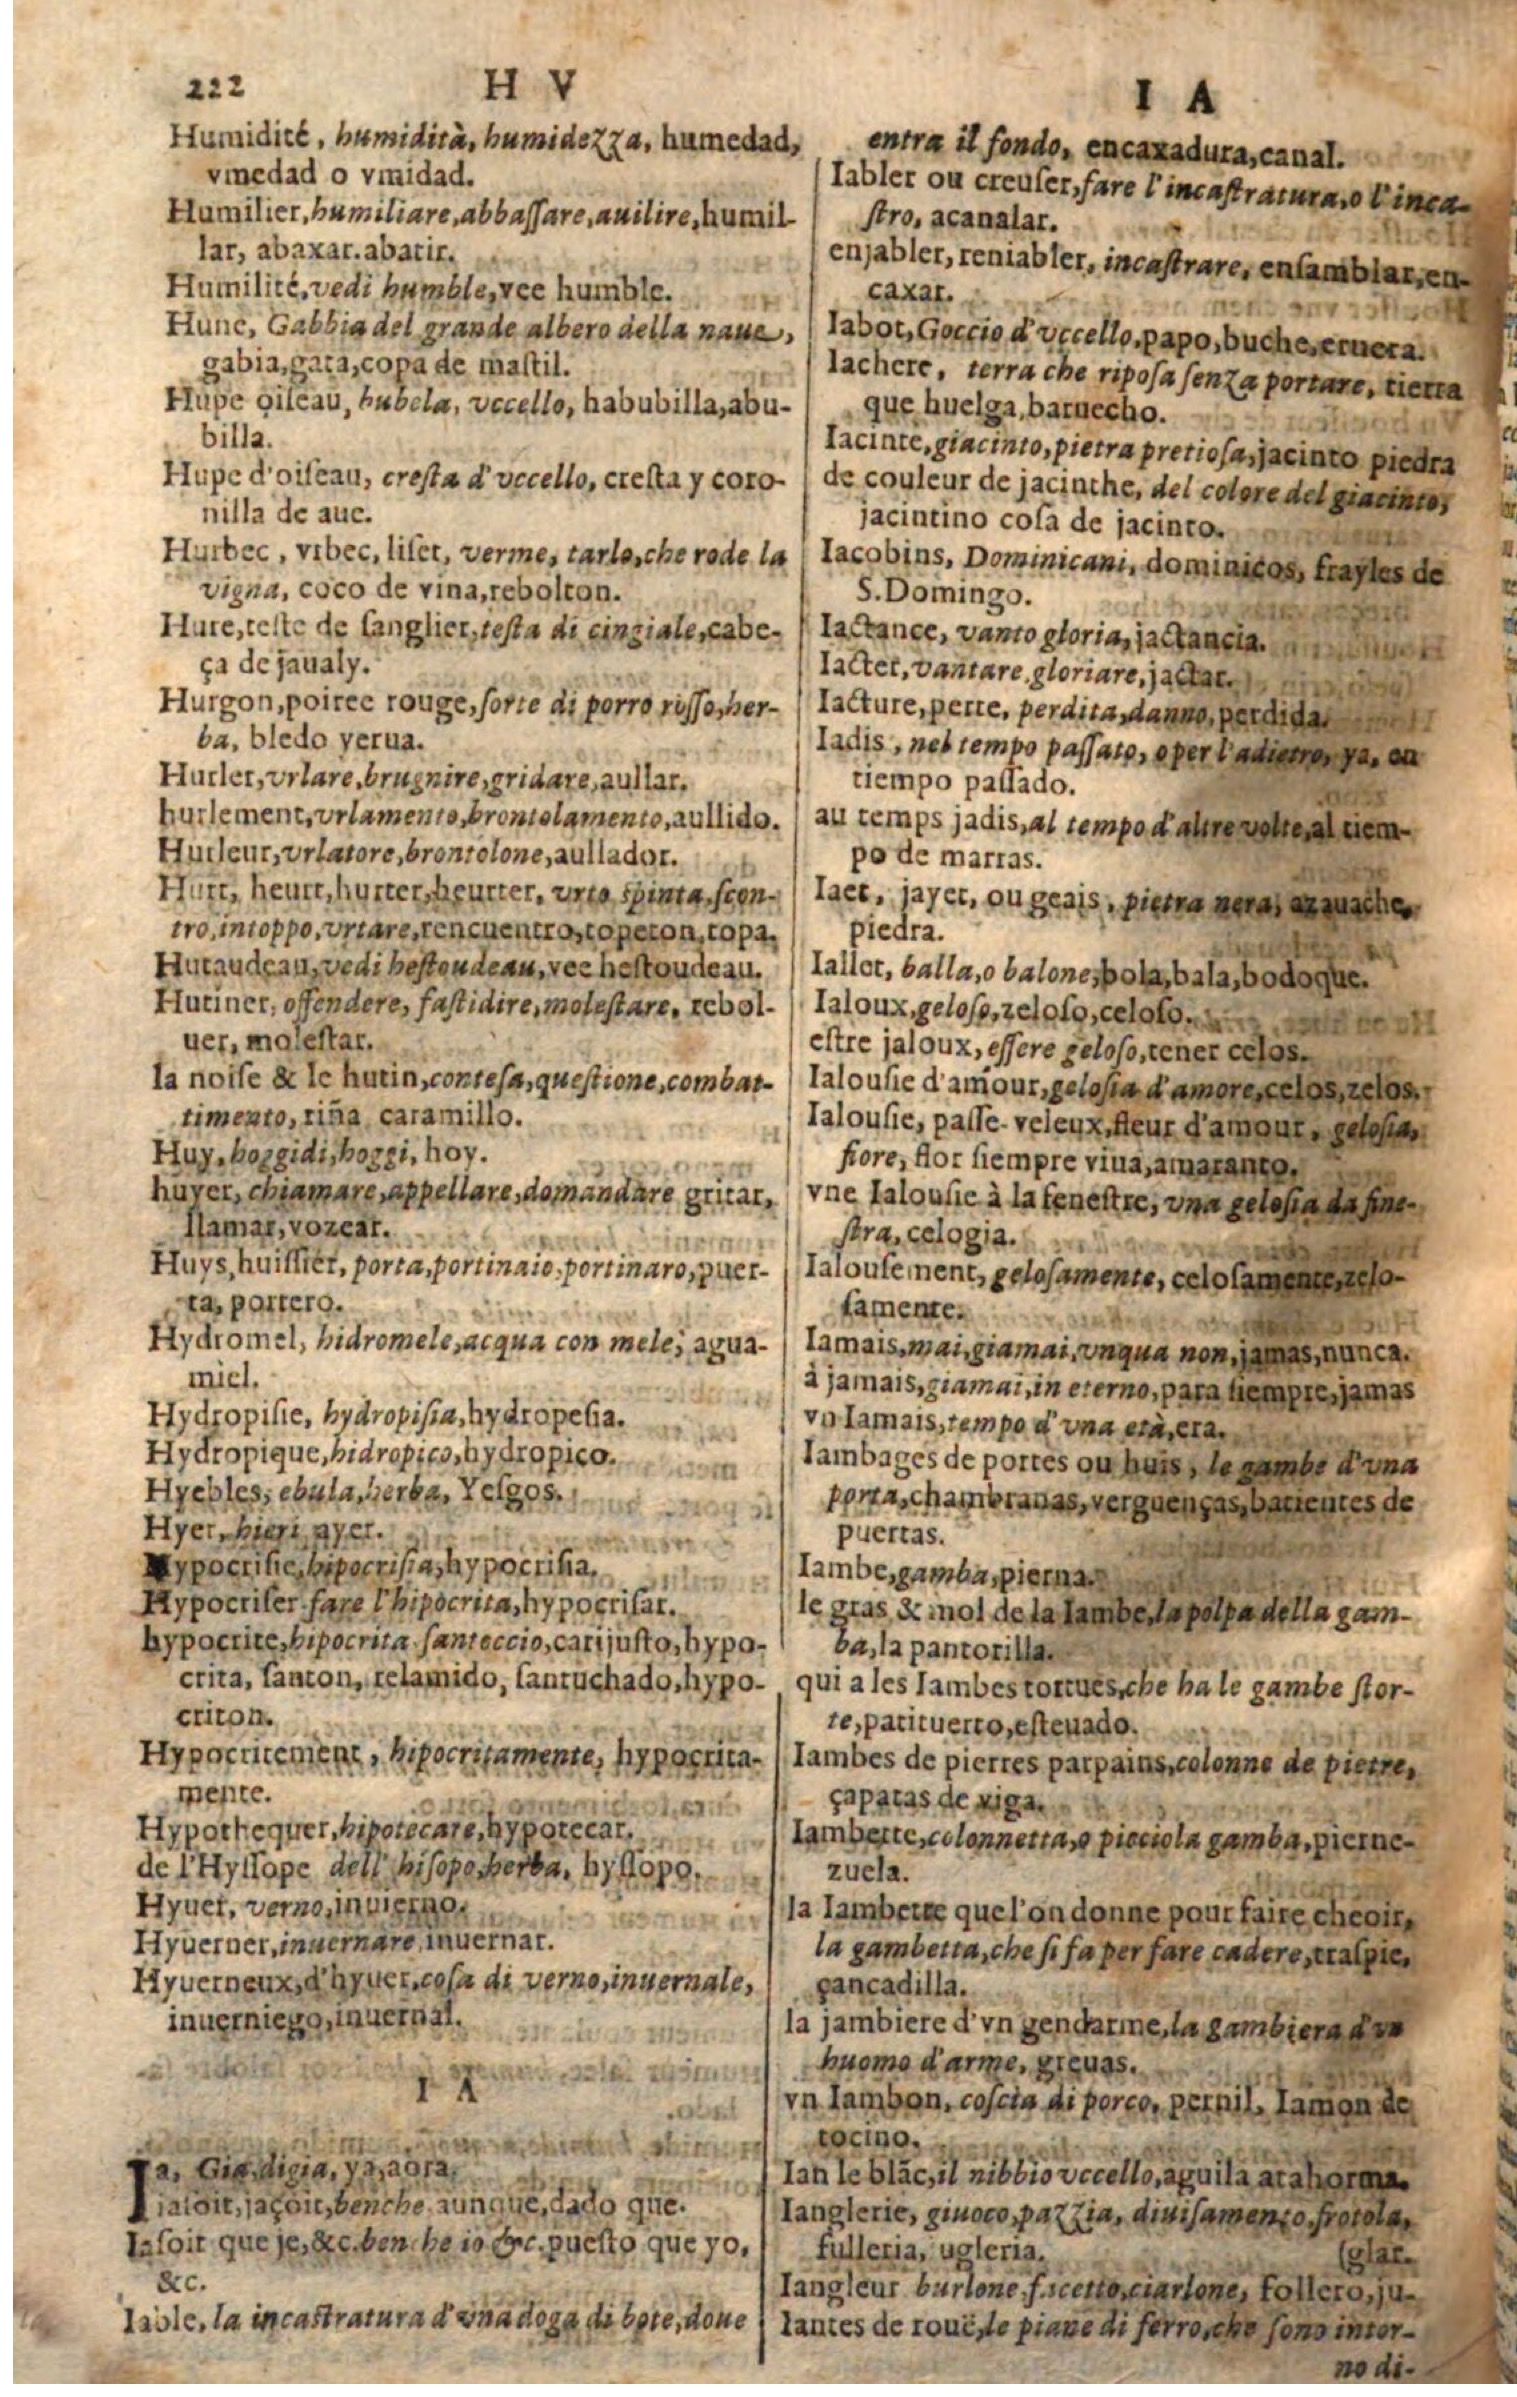 222
H V
Humidité, humidità, humidezza, humedad,
vmedad o vmidad.
Humilier, humiliare, abbaſſare, auilire, humil-
lar, abaxar. abatir.
Humilité, vedi humble, vee humble.
Hune, Gabbia del grande albero della naue,
gabia, gata, copa de maſtil.
Hupe oiſeau, hubela, vccello, habubilla, abu-
billa.
Hupe d'oiſeau, creſta d'vccello, creſta y coro-
nilla de aue.
Hurbec, vrbec, liſet, verme, tarlo, che rode la
vigna, coco de vina, rebolton.
Hure, teſte de ſanglier, teſta di cingiale, cabe-
ça de jaualy.
Hurgon, poiree rouge, ſorte di porro roſſo, her-
ba, bledo yerua.
Hurler, vrlare, brugnire, gridare, aullar.
hurlement, vrlamento, brontolamento, aullido.
Hurleur, vrlatore, brontolone, aullador.
Hurt, heurt, hurter, heurter, vrto spinta, ſcon-
tro, intoppo, vrtare, rencuentro, topeton, topa.
Hutaudeau, vedi heſtoudeau, vee heſtoudeau.
Hutiner, offendere, faſtidire, moleſtare, rebol-
uer, moleſtar.
la noiſe & le hutin, conteſa, queſtione, combat-
timento, riña caramillo.
Huy, hoggidi, hoggi, hoy.
huyer, chiamare, appellare, domandare gritar,
llamar, vozear.
Huys, huiſſier, porta, portinaio, portinaro, puer-
ta, portero.
Hydromel, hidromele, acqua con mele, agua-
miel.
Hydropiſie, hydropiſia, hydropeſia.
Hydropique, hidropico, hydropico.
Hyebles, ebula, herba, Yeſgos.
Hyer, hieri, ayer.
Hypocriſie, hipocriſia, hypocriſia.
Hypocriſer fare l'hipocrita, hypocriſar.
hypocrite, hipocrita ſanteccio, carijuſto, hypo-
crita, ſanton, relamido, ſantuchado, hypo-
criton.
Hypocritement, hipocritamente, hypocrita-
mente.
Hypothequer, hipotecare, hypotecar.
de l'Hyſſope dell'hiſopo, herba, hyſſopo.
Hyuer, verno, inuierno.
Hyuerner, inuernare, inuernar.
Hyuerneux, d'hyuer, coſa di verno, inuernale,
inuerniego, inuernal.
I A
Ia, Gia, digia, ya, aora.
iaſoit, jaçoit, benche aunque, dado que.
Iaſoit que je, &c. ben che io &c. pueſto que yo,
&c.
Iable, la incaſtratura d'vna doga di bote, doue
I A
entra il fondo, encaxadura, canal.
Iabler ou creuſer, fare l'incaſtratura, o l'inca-
ſtro, acanalar.
enjabler, reniabler, incaſtrare, enſamblar, en-
caxar.
Iabot, Goccio d'vccello, papo, buche, eruera.
Iachere, terra che ripoſa ſenza portare, tierra
que huelga, baruecho.
Iacinte, giacinto, pietra pretioſa, jacinto piedra
de couleur de jacinthe, del colore del giacinto,
jacintino coſa de jacinto.
Iacobins, Dominicani, dominicos, frayles de
S. Domingo.
Iactance, vanto gloria, jactancia.
Iacter, vantare, gloriare, jactar.
Iacture, perte, perdita, danno, perdida.
Iadis, nel tempo paſſato, o per l'adietro, ya, en
tiempo paſſado.
au temps jadis, al tempo d'altre volte, al tiem-
po de marras.
Iaet, jayet, ou geais, pietra nera, azauache,
piedra.
Iallet, balla, o balone, bola, bala, bodoque.
Ialoux, geloſo, zeloſo, celoſo.
eſtre jaloux, eſſere geloſo, tener celos.
Ialouſie d'amour, geloſia d'amore, celos, zelos.
Ialouſie, paſſe-veleux, fleur d'amour, geloſia,
fiore, flor ſiempre viua, amaranto.
vne Ialouſie à la feneſtre, vna geloſia da fine-
ſtra, celogia.
Ialouſement, geloſamente, celoſamente, zelo-
ſamente.
Iamais, mai, giamai, vnqua non, jamas, nunca.
à jamais, giamai, in eterno, para ſiempre, jamas
vn Iamais, tempo d'vna età, era.
Iambages de portes ou huis, le gambe d'vna
porta, chambranas, verguenças, batientes de
puertas.
Iambe, gamba, pierna.
le gras & mol de la Iambe, la polpa della gam-
ba, la pantorilla.
qui a les Iambes tortues, che ha le gambe ſtor-
te, patituerto, eſteuado.
Iambes de pierres parpains, colonne de pietre,
çapatas de viga.
Iambette, colonnetta, o picciola gamba, pierne-
zuela.
la Iambette que l'on donne pour faire cheoir,
la gambetta, che ſi fa per fare cadere, traſpie,
çancadilla.
la jambiere d'vn gendarme, la gambiera d'vn
huomo d'arme, greuas.
vn Iambon, coſcia di porco, pernil, Iamon de
tocino.
Ian le blāc, il nibbio vccello, aguila atahorma.
Ianglerie, giuoco, pazzia, diuiſamento, frotola,
fulleria, ugleria. (glar.
Iangleur burlone, facetto, ciarlone, follero, ju-
Iantes de rouë, le piane di ferro, che ſono intor-
no di-